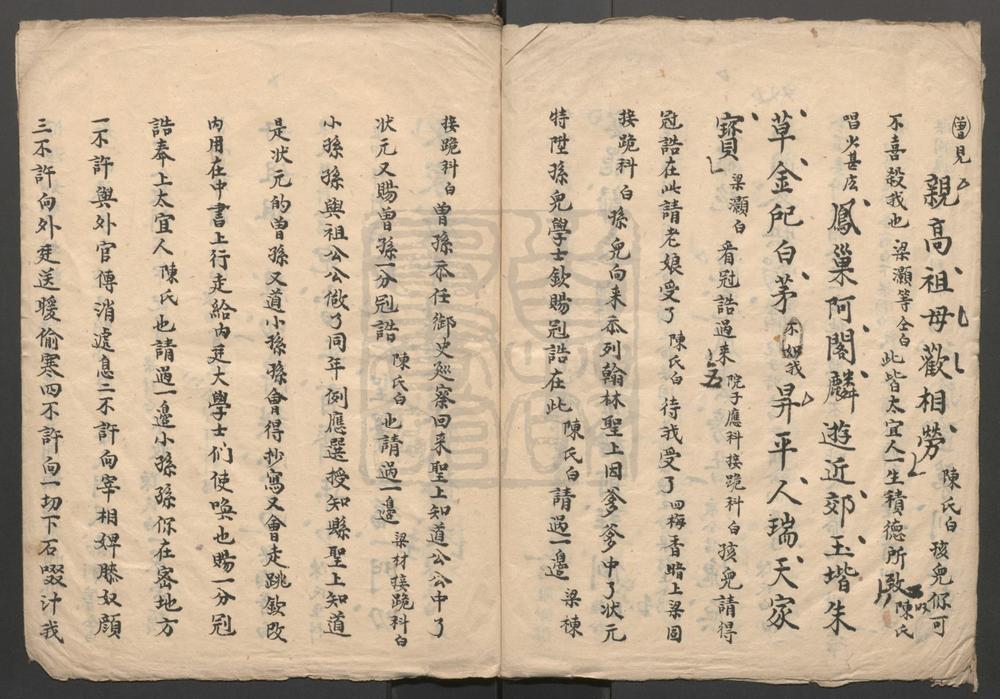 曾見親高祖母歡相勞 陳氏白 孩兒你可
不喜殺我也 梁灝等仝白 此皆太宜人一生積德所致 陳氏
唱 鳳巢阿閣麟遊近郊玉堦朱
草金卮白茅不如我昇平人瑞天家
寶 梁灝白 看冠誥過來 院子應科接跪科白 孩兒請得
冠誥在此請老娘受了 陳氏白 待我受了 四梅香暗上梁固
接跪科白 孫兒向來忝列翰林聖上因爹爹中了狀元
特陞孫兒學士欽賜冠誥在此 陳氏白 請過一邊 梁棟
接跪科白 曾孫忝任御史廵察回來聖上知道公公中了
狀元又賜曾孫一分冠誥 陳氏白 也請過一邊 梁材接跪科白
小孫孫與祖公公做了同年例應選授知縣聖上知道
是狀元的曾孫又道小孫孫會得抄寫又會走跳欽改
內用在中書上行走給內廷大學士们使喚也賜一分冠
誥奉上太宜人 陳氏 也請過一邊小孫孫你在宻地方
一不許與外官傳消遞息二不許向宰相婢膝奴顔
三不許向外廷送暖偷寒四不許向一切下石啜汁我